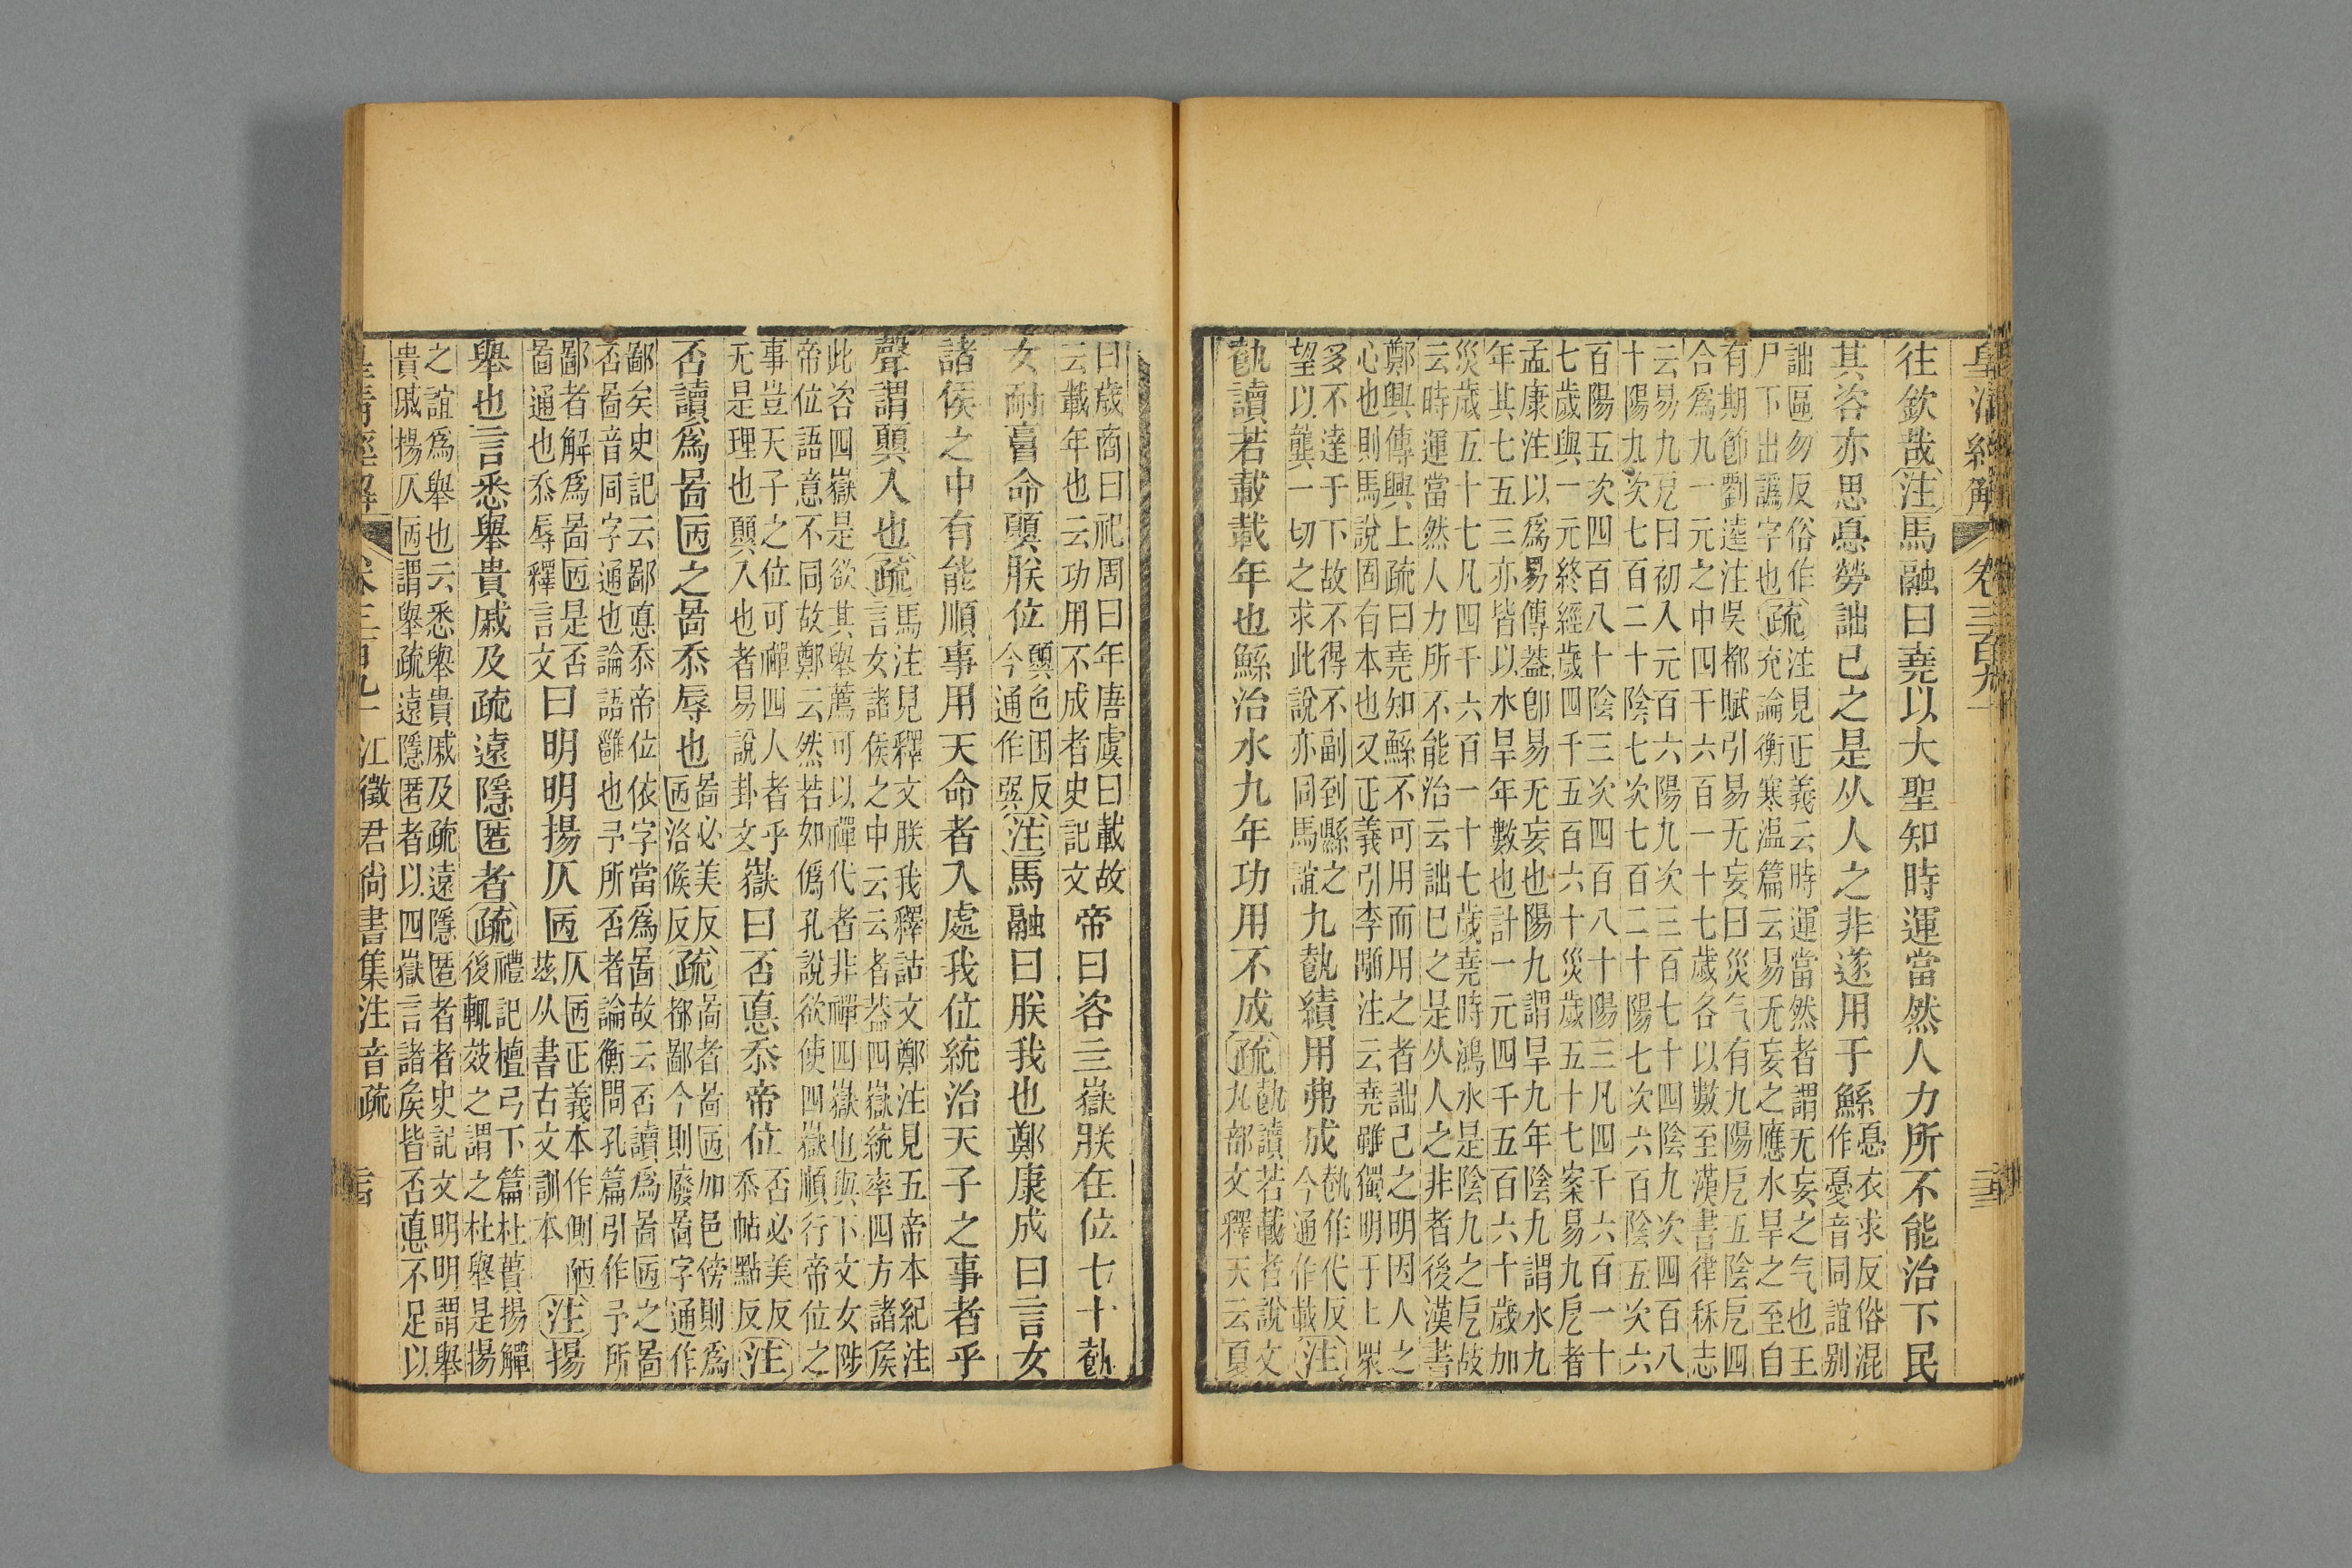 皇清經解 卷三百九十
往欽哉注馬融曰堯以大聖知時運當然人力所不能治下民
其咨亦思㥑勞詘已之是从人之非遂用于鯀㥑衣求反俗混
作憂音同誼别
詘區勿反俗作疏注見正義云時運當然者謂无妄之气也王
尸下出譌字也充論衡寒温篇云易无妄之應水旱之至自
有期節劉逵注吳都賦引易无妄曰災气有九陽戹五陰戹四
合爲九一元之中四千六百一十七歲各以數至漢書律秝志
云易九戹曰初入元百六陽九次三百七十四陰九次四百八
十陽九次七百二十陰七次七百二十陽七次六百陰五次六
百陽五次四百八十陰三次四百八十陽三凡四千六百一十
七歲與一元終經歲四千五百六十災歲五十七案易九戹者
孟康注以爲易傳葢卽易无妄也陽九謂旱九年陰九謂水九
年其七五三亦皆以水旱年數也計一元四千五百六十歲加
災歲五十七凡四千六百一十七歲堯時鴻水是陰九之戹故
云時運當然人力所不能治云詘巳之是从人之非者後漢書
鄭興傳興上疏曰堯知鯀不可用而用之者詘己之明因人之
心也則馬說固有本也又正義引李顒注云堯雖獨明于上眾
多不達于下故不得不副到縣之
望以龔一切之求此說亦同馬誼
九𩛥績用弗成𩛥作代反
今通作載注
𩛥讀若載載年也鯀治水九年功用不成疏𩛥讀若載者說文
丮部文釋天云夏
曰歲商曰祀周曰年唐虞曰載故
云載年也云功用不成者史記文
帝曰咨亖嶽朕在位七十𩛥
女耐𠶷命顨朕位顨色困反
今通作巽注馬融曰朕我也鄭康成曰言女
諸侯之中有能順事用天命者入處我位統治天子之事者乎
聲謂顨入也疏馬注見釋文朕我釋詁文鄭注見五帝本紀注
言女諸侯之中云云者葢四嶽統率四方諸矦
此咨四嶽是欲其舉薦可以禪代者非禪四嶽也與下文女陟
帝位語意不同故鄭云然若如僞孔說欲使四嶽順行帝位之
事豈天子之位可禪四人者乎
无是理也顨入也者易說卦文
嶽曰否悳忝帝位否必美反
忝帖點反注
否讀爲啚㔷之啚忝辱也啚必美反
㔷洛候反疏啚者啚㔷加邑傍則爲
都鄙今則廢啚字通作
鄙矣史記云鄙悳忝帝位依字當爲啚故云否讀爲啚㔷之啚
否啚音同字通也論語雝也予所否者論衡問孔篇引作予所
鄙者解爲啚㔷是否
啚通也忝辱釋言文
曰明明揚仄㔷仄㔷正義本作側陋
茲从書古文訓本注揚
舉也言悉舉貴戚及疏遠隱匿者疏禮記檀弓下篇杜蕢揚觶
後輒𢼁之謂之杜舉是揚
之誼爲舉也云悉舉貴戚及疏遠隱匿者者史記文明明謂舉
貴戚揚仄㔷謂舉疏遠隱匿者以四嶽言諸矦皆否悳不足以
皇清經解 卷三百九十 江徵君尚書集注音疏